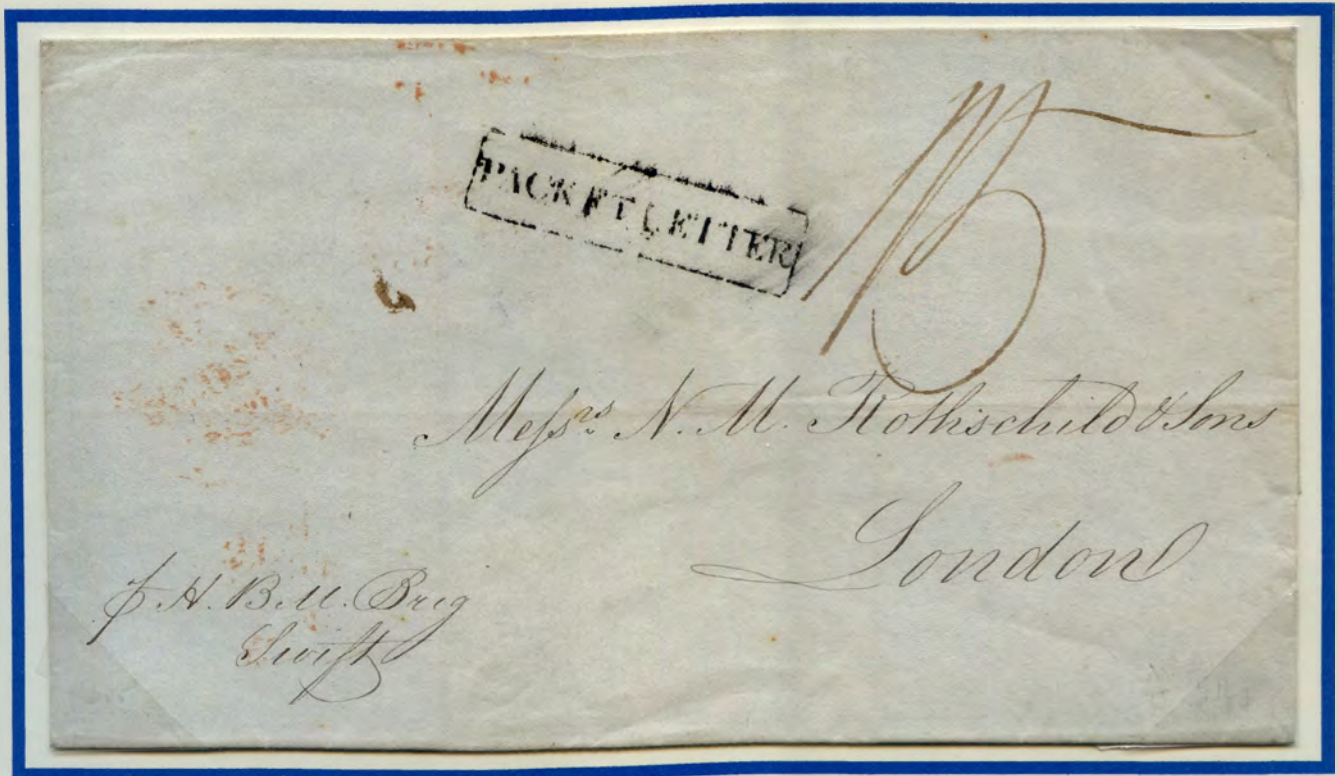 PACKET LETTER
Messrs. N. M. Rothschild & Sons
London
p H. B. M. Brig
Swift